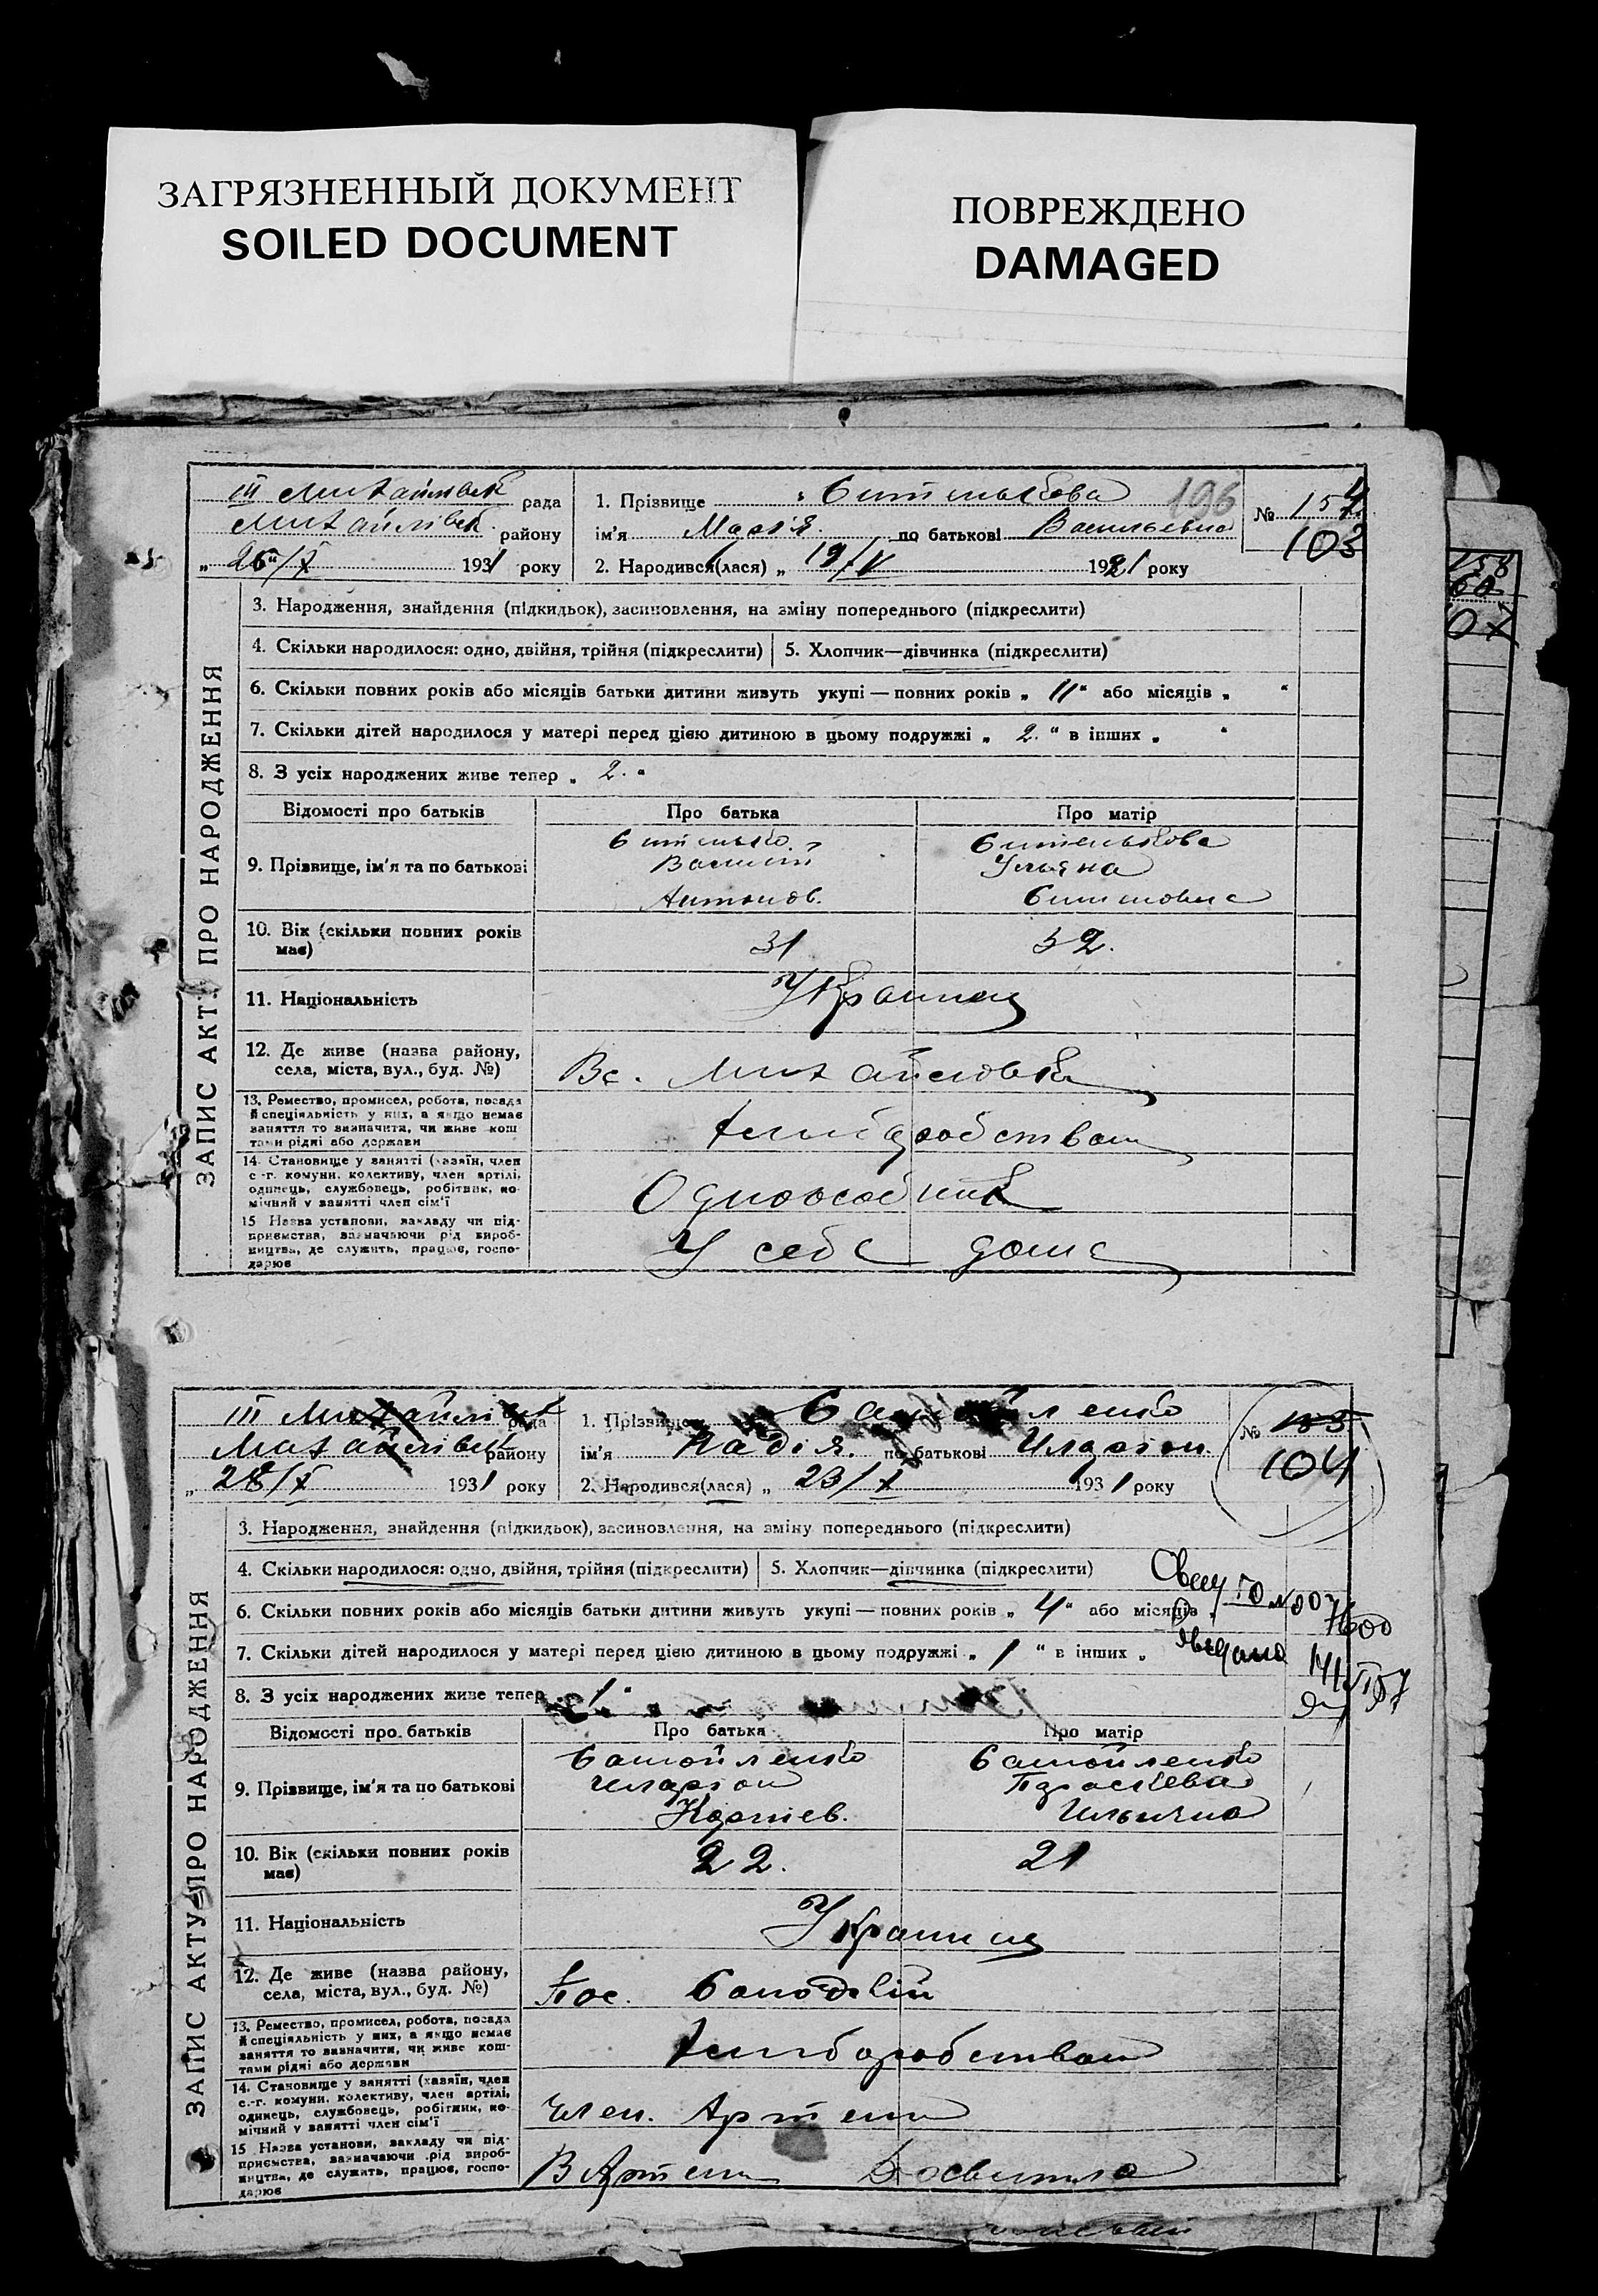 ЗАГРЯЗНЕННЫЙ ДОКУМЕНТ
SOILED DOCUMENT
ПОВРЕЖДЕНО
DAMAGED
ЗАПИС АКТУ ПРО НАРОДЖЕННЯ
III Михайлівск рада
Михайлівск. району
„ 26 "/X 1931 року
1. Прізвище Ситенькова 196
ім'я Марія. по батькові Васильевна
2. Народився(лася) „ 19/V 1921 року
№ 157
103
3. Народження, знайдення (підкидьок), засиновлення, на зміну попереднього (підкреслити)
4. Скільки народилося: одно, двійня, трійня (підкреслити) 5. Хлопчик—дівчинка (підкреслити)
6. Скільки повних років або місяців батьки дитини живуть укупі — повних років „ 11 " або місяців „ "
7. Скільки дітей народилося у матері перед цією дитиною в цьому подружжі „ 2. " в інших „ "
8. З усіх народжених живе тепер „ 2. "
Відомості про батьків Про батька Про матір
9. Прізвище, ім'я та по батькові
Ситенько
Василий
Антонов.
Ситенькова
Ульяна
10. Вік (скільки повних років має) 31 32.
11. Національність Украинц
12. Де живе (назва району, села, міста, вул., буд. №) Вс. Михайловка
13. Ремество, промисел, робота, посада й спеціяльність у них, а якщо немає заняття то визначити, чи живе коштами рідні або держави Хлиборобством
14. Становище у занятті (хазяїн, член с.-г. комуни, колективу, член артілі, одинець, службовець, робітник, помічний у занятті член сім'ї Одноособник
15 Назва установи, закладу чи підприємства, зазначаючи рід виробництва, де служить, працює, господарює У себе дома
158
60
107
ЗАПИС АКТУ ПРО НАРОДЖЕННЯ
III Михайлівск рада
Михайлівск району
„ 28/X 1931 року
1. Прізвище Самойленко
ім'я Надія. по батькові Иларіон.
2. Народився(лася) „ 23/X 1931 року
№ 105
104
3. Народження, знайдення (підкидьок), засиновлення, на зміну попереднього (підкреслити)
4. Скільки народилося: одно, двійня, трійня (підкреслити) 5. Хлопчик—дівчинка (підкреслити)
6. Скільки повних років або місяців батьки дитини живуть укупі — повних років „ 4 " або місяців „
7. Скільки дітей народилося у матері перед цією дитиною в цьому подружжі „ 1 " в інших „
8. З усіх народжених живе тепер „ 1 "
Відомості про батьків Про батька Про матір
9. Прізвище, ім'я та по батькові
Самойленко
Иларіон
Корнієв.
Самойленко
Параскева
Ильична
10. Вік (скільки повних років має) 22. 21
11. Національність Украинц
12. Де живе (назва району, села, міста, вул., буд. №) Пос.
13. Ремество, промисел, робота, посада й спеціяльність у них, а якщо немає заняття то визначити, чи живе коштами рідні або держави Хлиборобством
14. Становище у занятті (хазяїн, член с.-г. комуни, колективу, член артілі, одинець, службовець, робітник, помічний у занятті член сім'ї Член. Артели
15 Назва установи, закладу чи підприємства, зазначаючи рід виробництва, де служить, працює, господарює В Артели